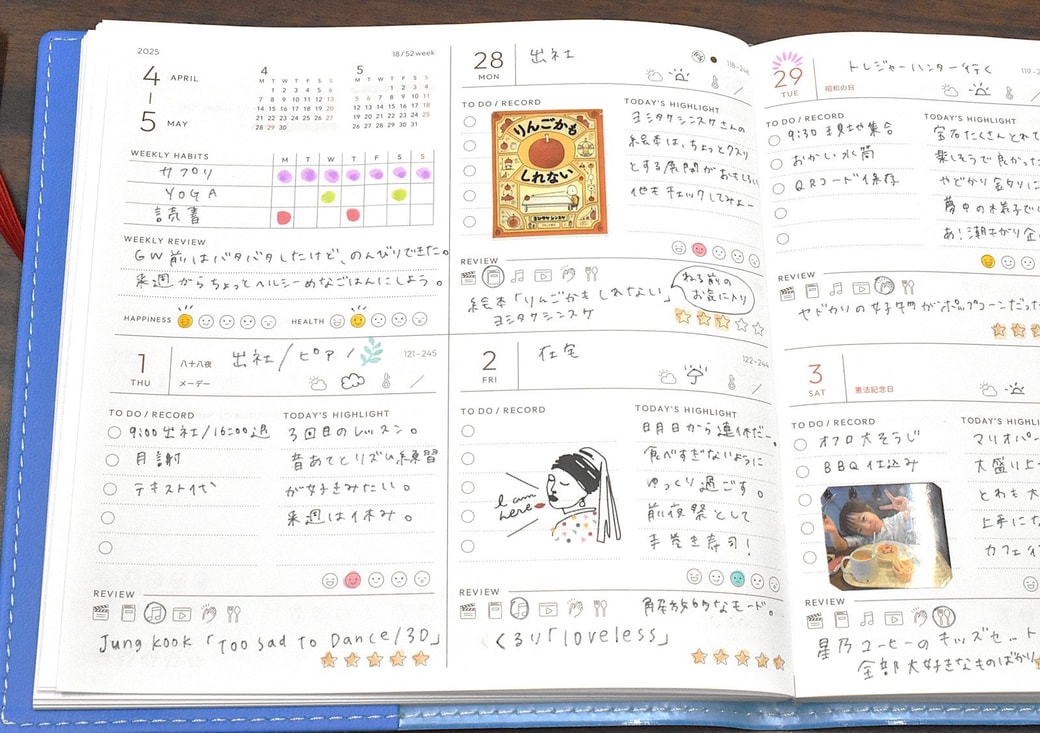 2025
18/52week
4 APRIL
5 MAY
4
M T W T F S S
1 2 3 4 5 6
7 8 9 10 11 12 13
14 15 16 17 18 19 20
21 22 23 24 25 26 27
28 29 30
5
M T W T F S S
1 2 3 4
5 6 7 8 9 10 11
12 13 14 15 16 17 18
19 20 21 22 23 24 25
26 27 28 29 30 31
WEEKLY HABITS
M T W T F S S
サプリ
YOGA
読書
WEEKLY REVIEW
GW前はバタバタしたけど、のんびりできた。
来週からちょっとヘルシーめなごはんにしよう。
HAPPINESS
HEALTH
28 MON
出社
118-246
TO DO / RECORD
りんごかも
しれない
ヨシタケシンスケ
TODAY'S HIGHLIGHT
ヨシタケシンスケさんの
絵本は、ちょっとクスッ
とする展開がおもしろい
他もチェックしてみよー
REVIEW
絵本「りんごかもしれない」
ヨシタケシンスケ
ねる前の
お気に入り
29 TUE
昭和の日
トレジャーハンター行く
119-2
TO DO / RECORD
9:30 現地集合
おかし 水筒
QRコード保存
TODAY'S HIGHLIGHT
宝石たくさんとれて
楽しそうで良かった
やどかり釣りに
夢中の様子で
あ!潮干がり
REVIEW
ヤドカリの好物がポップコーンだった
1 THU
八十八夜
メーデー
出社/ピアノ
121-245
TO DO / RECORD
9:00出社/16:00退
月謝
テキスト代
TODAY'S HIGHLIGHT
3回目のレッスン。
音あてとリズム練習
が好きみたい。
来週は休み。
REVIEW
Jung kook 「Too Sad To Dance/3D」
2 FRI
在宅
122-244
TO DO / RECORD
I am
here
TODAY'S HIGHLIGHT
明日から連休だー。
食べすぎないように
ゆっくり過ごす。
前夜祭として
手巻き寿司!
解放的なモード。
REVIEW
くるり「loveless」
3 SAT
憲法記念日
TO DO / RECORD
オフロ大そうじ
BBQ仕込み
TODAY'S HIGHLIGHT
マリオパー
大盛り上
とわも大
上手にな
カフェ
REVIEW
星乃コーヒーのキッズセット
全部大好きなものばかり